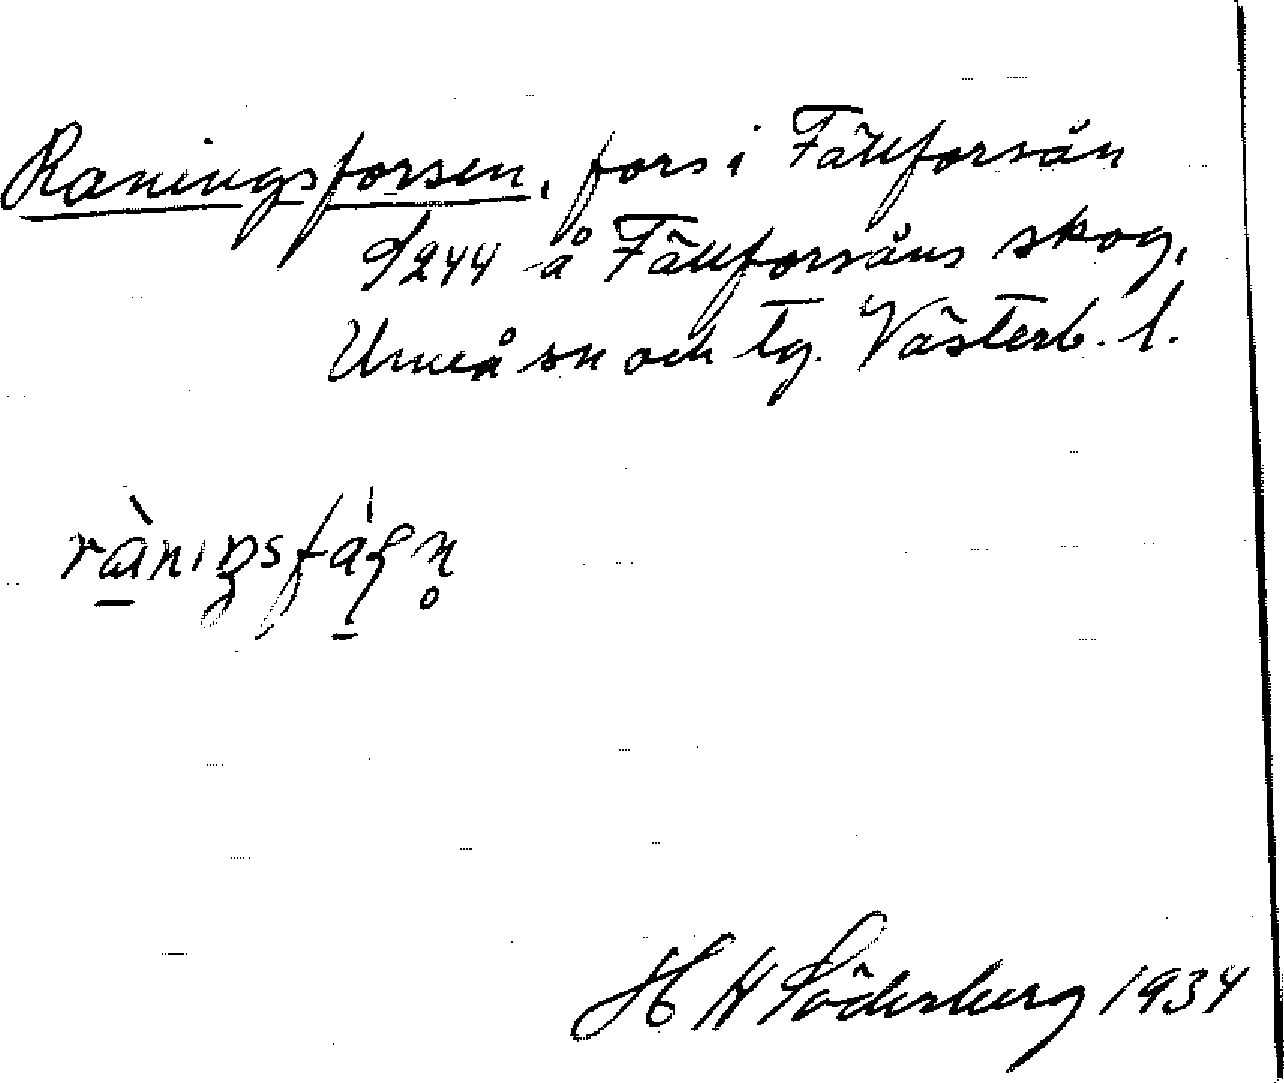 Raningsforsen, fors i Fällforsån
S244 å Fällforsåns skog,
Umeå sn och tg. Västerb. l.
H H Söderberg 1934